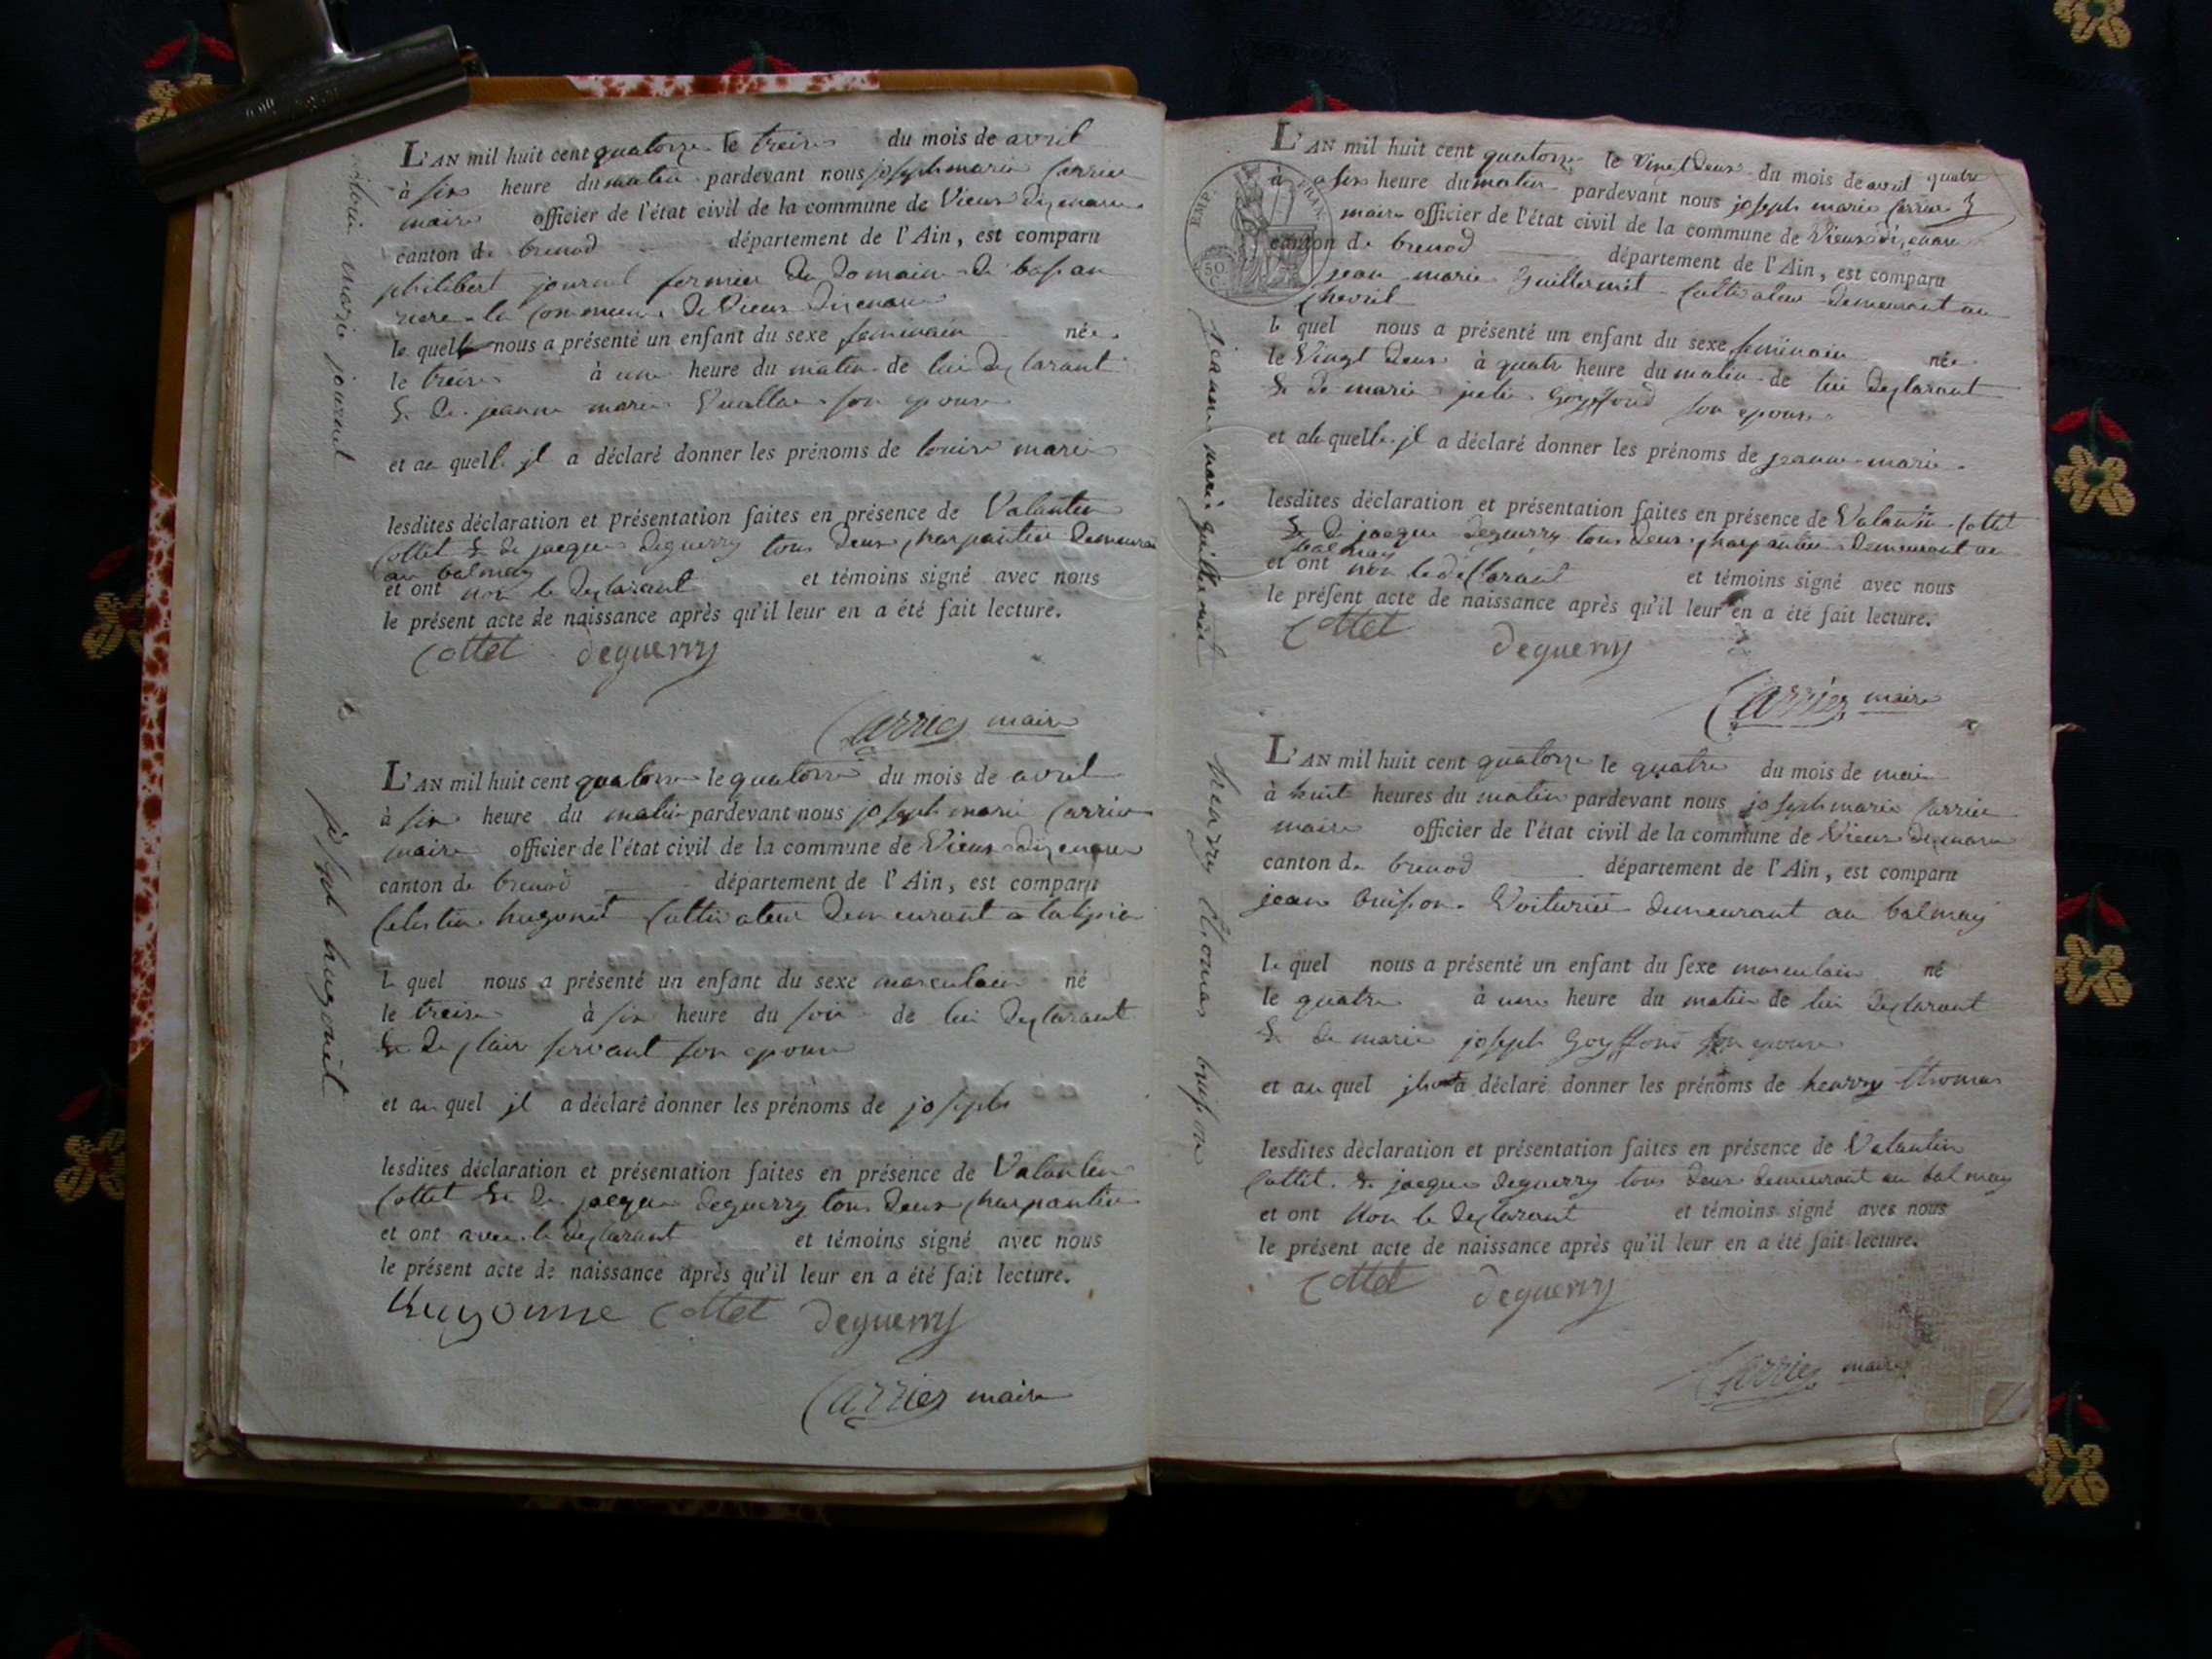 L'AN mil huit cent quatorze le treize du mois de avril
à six heure du matin pardevant nous joseph marie Carrier
maire officier de l'état civil de la commune de Vieux dizenave
canton de brenod département de l'Ain, est comparu
philibert journet fermier du domaine de
riere la commune de Vieux dizenave
le quel nous a présenté un enfant du sexe feminain née
le treize à une heure du matin de lui desclarant
& de jeanne marie son epouse
et a quelle jl a déclaré donner les prénoms de marie
lesdites déclaration et présentation faites en présence de Valantin
Cottet & de jacque deguerry tous deux charpantier demeura
au balmay
et ont non le desclarant et témoins signé avec nous
le présent acte de naissance après qu'il leur en a été fait lecture.
Cottet deguerry
Carrier maire
marie journet
L'AN mil huit cent quatorze le quatorze du mois de avril
à six heure du matin pardevant nous joseph marie Carrier
maire officier de l'état civil de la commune de Vieux dizenave
canton de brenod département de l'Ain, est comparu
Celestin hugonet Cultivateur demeurant a
le quel nous a présenté un enfant du sexe masculain né
le treize à six heure du soir de lui desclarant
& de clair servant son epouse
et au quel jl a déclaré donner les prénoms de joseph
lesdites déclaration et présentation faites en présence de Valantin
Cottet & de jacque deguerry tous deux charpantier
et ont avec le desclarant et témoins signé avec nous
le présent acte de naissance après qu'il leur en a été fait lecture.
Cottet deguerry
Carrier maire
joseph hugonet
EMP. FRAN.
50 C.
L'AN mil huit cent quatorze le vingt deux du mois de avril quatre
à a six heure du matin pardevant nous joseph marie Carrier
maire officier de l'état civil de la commune de Vieux dizenave
canton de brenod département de l'Ain, est comparu
jean marie Guillermet Cultivateur demeurant au
Chevril
le quel nous a présenté un enfant du sexe feminain née
le Vingt deux à quatre heure du matin de lui desclarant
& de marie Goyffond son epouse
et a le quelle jl a déclaré donner les prénoms de jeanne marie
lesdites déclaration et présentation faites en présence de Valantin Cottet
& de jacque deguerry tous deux charpantier demeurant au
balmay
et ont non le desclarant et témoins signé avec nous
le présent acte de naissance après qu'il leur en a été fait lecture.
Cottet deguerry
Carrier maire
jeanne marie guillermet
L'AN mil huit cent quatorze le quatre du mois de mai
à huit heures du matin pardevant nous joseph marie Carrier
maire officier de l'état civil de la commune de Vieux dizenave
canton de brenod département de l'Ain, est comparu
jean buisson Voiturier demeurant au balmay
le quel nous a présenté un enfant du sexe masculain né
le quatre à une heure du matin de lui desclarant
& de marie joseph Goyffond son epouse
et au quel a déclaré donner les prénoms de henrry thomas
lesdites déclaration et présentation faites en présence de Valantin
Cottet & jacque deguerry tous deux demeurant au balmay
et ont non le desclarant et témoins signé avec nous
le présent acte de naissance après qu'il leur en a été fait lecture.
Cottet deguerry
Carrier maire
henrry thomas buisson